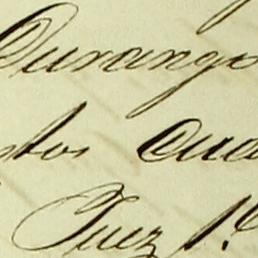 Durango
tos cua
Juez 1.º